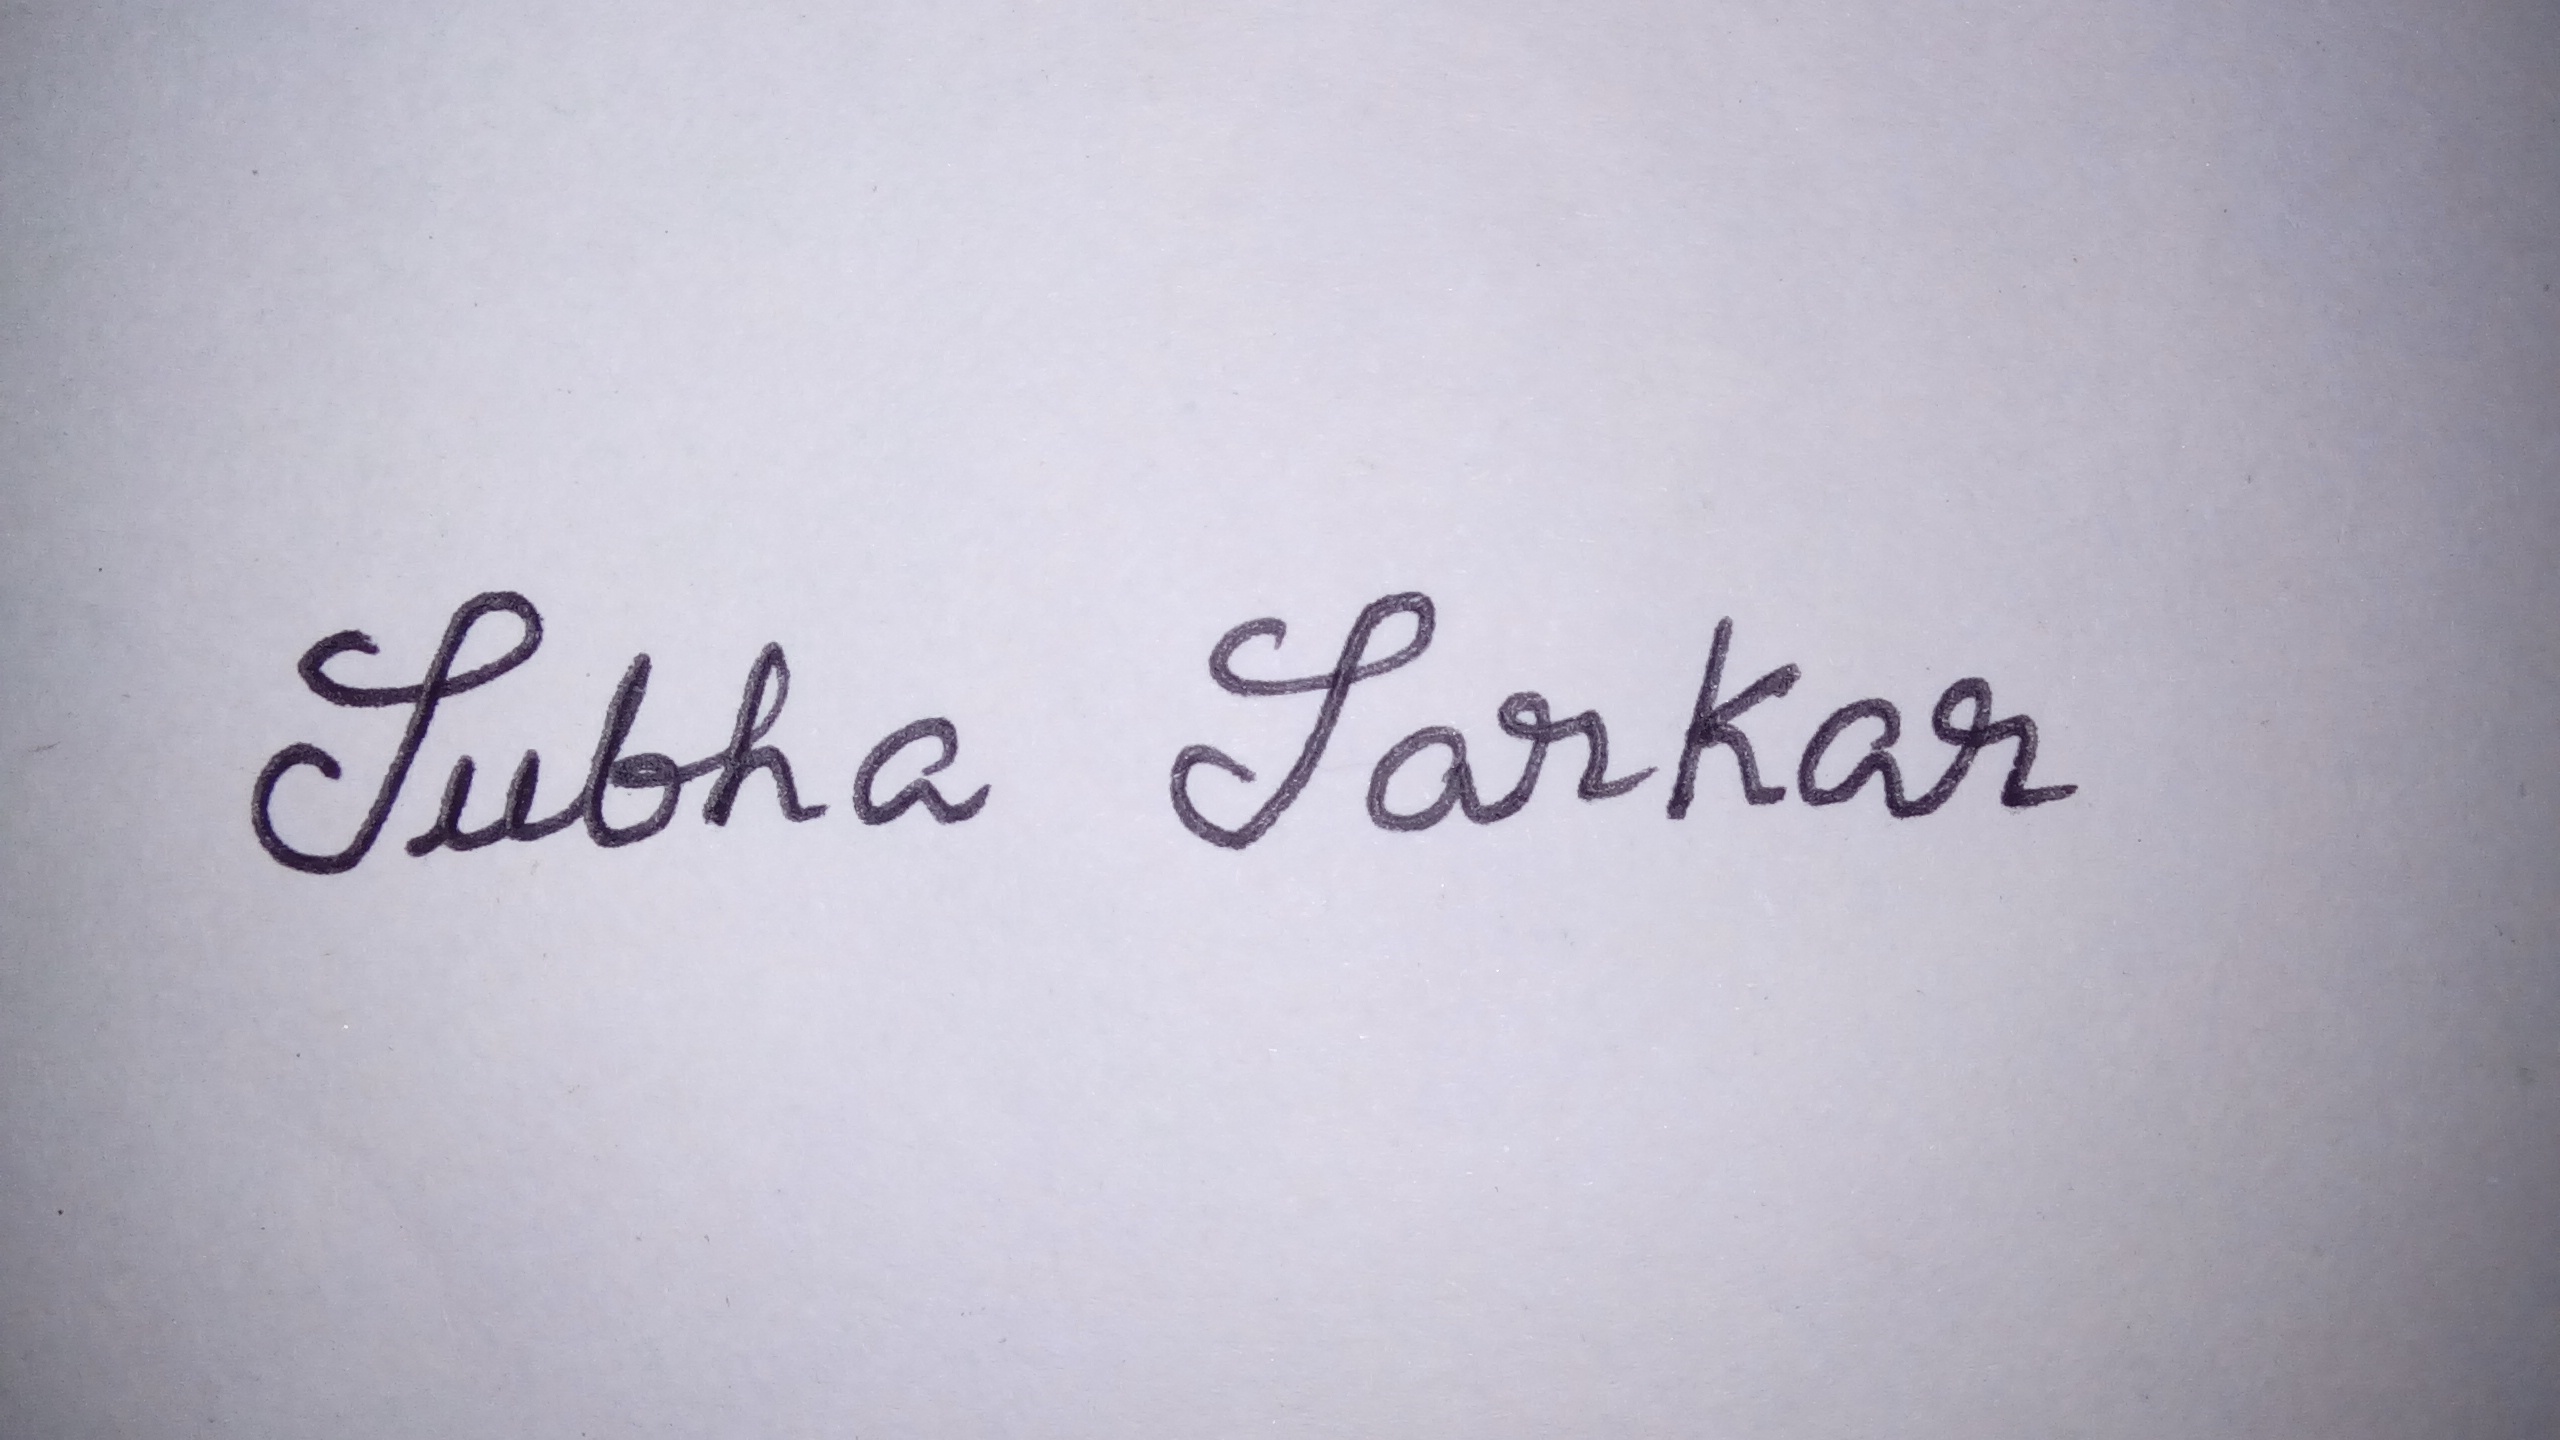 Subha Sarkar